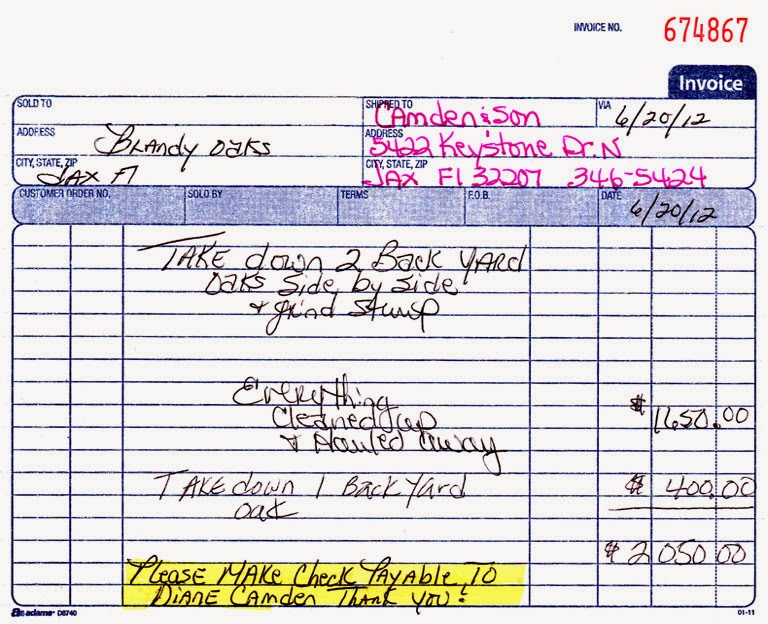 INVOICE NO. 674867
Invoice
SOLD TO
SHIPPED TO Camden & Son
VIA 6/20/12
ADDRESS Blandy Oaks
ADDRESS 5422 Keystone Dr. N
CITY, STATE, ZIP JAX Fl
CITY, STATE, ZIP JAX Fl 32207 346-5424
CUSTOMER ORDER NO. SOLD BY TERMS F.O.B. DATE 6/20/12
TAKE down 2 Back YARD
oaks side by side
& grind stump
Everything
Cleaned up $ 1650.00
& Hauled away
TAKE down 1 Back Yard $ 400.00
oak
$ 2050 00
Please MAKE Check PAYable TO
DIANE CAMDEN THANK YOU!
adams D8740 01-11